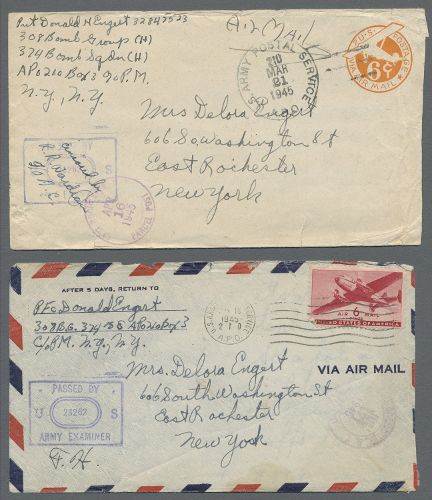 Pvt Donald H Engert 32847523
308 Bomb Group (H)
374 Bomb Sqdn (H)
APO 210 Box 3 % P.M.
N.Y., N.Y.
Air Mail
U.S. ARMY POSTAL SERVICE
210
MAR
21
1945
U.S. POSTAGE
VIA AIR MAIL
6¢
Mrs Delora Engert
606 So, Washington St
East Rochester
New York
censored by
S
16
1945
PARCEL POST
AFTER 5 DAYS, RETURN TO
PFC Donald Engert
308 B.G. 374 APO 210 Box 3
C/o P.M. N.Y., N.Y.
1945
A.P.O.
AIR 6 MAIL
UNITED STATES OF AMERICA
Mrs. Delora Engert
606 South Washington St
East Rochester
New York
VIA AIR MAIL
PASSED BY
U 23262 S
ARMY EXAMINER
F. H.